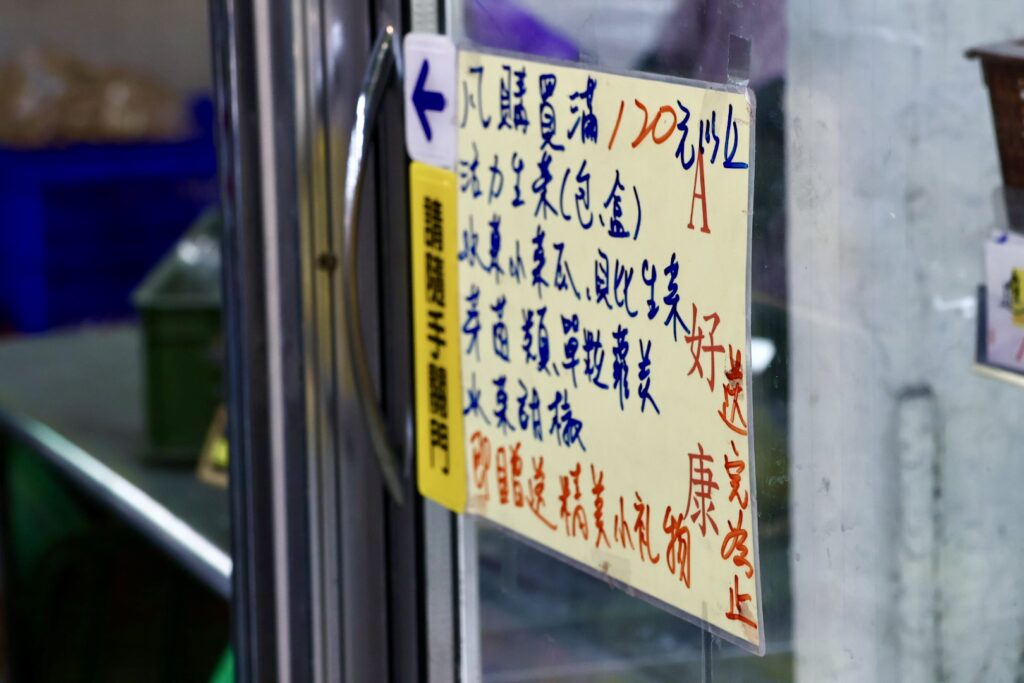 凡購買滿120元以上
活力生菜(包、盒)
水菓小菜瓜、貝比生菜
芽苗類、單粒蘿美
水菓甜椒
即贈送精美小礼物
A好康
送完為止
請隨手關門